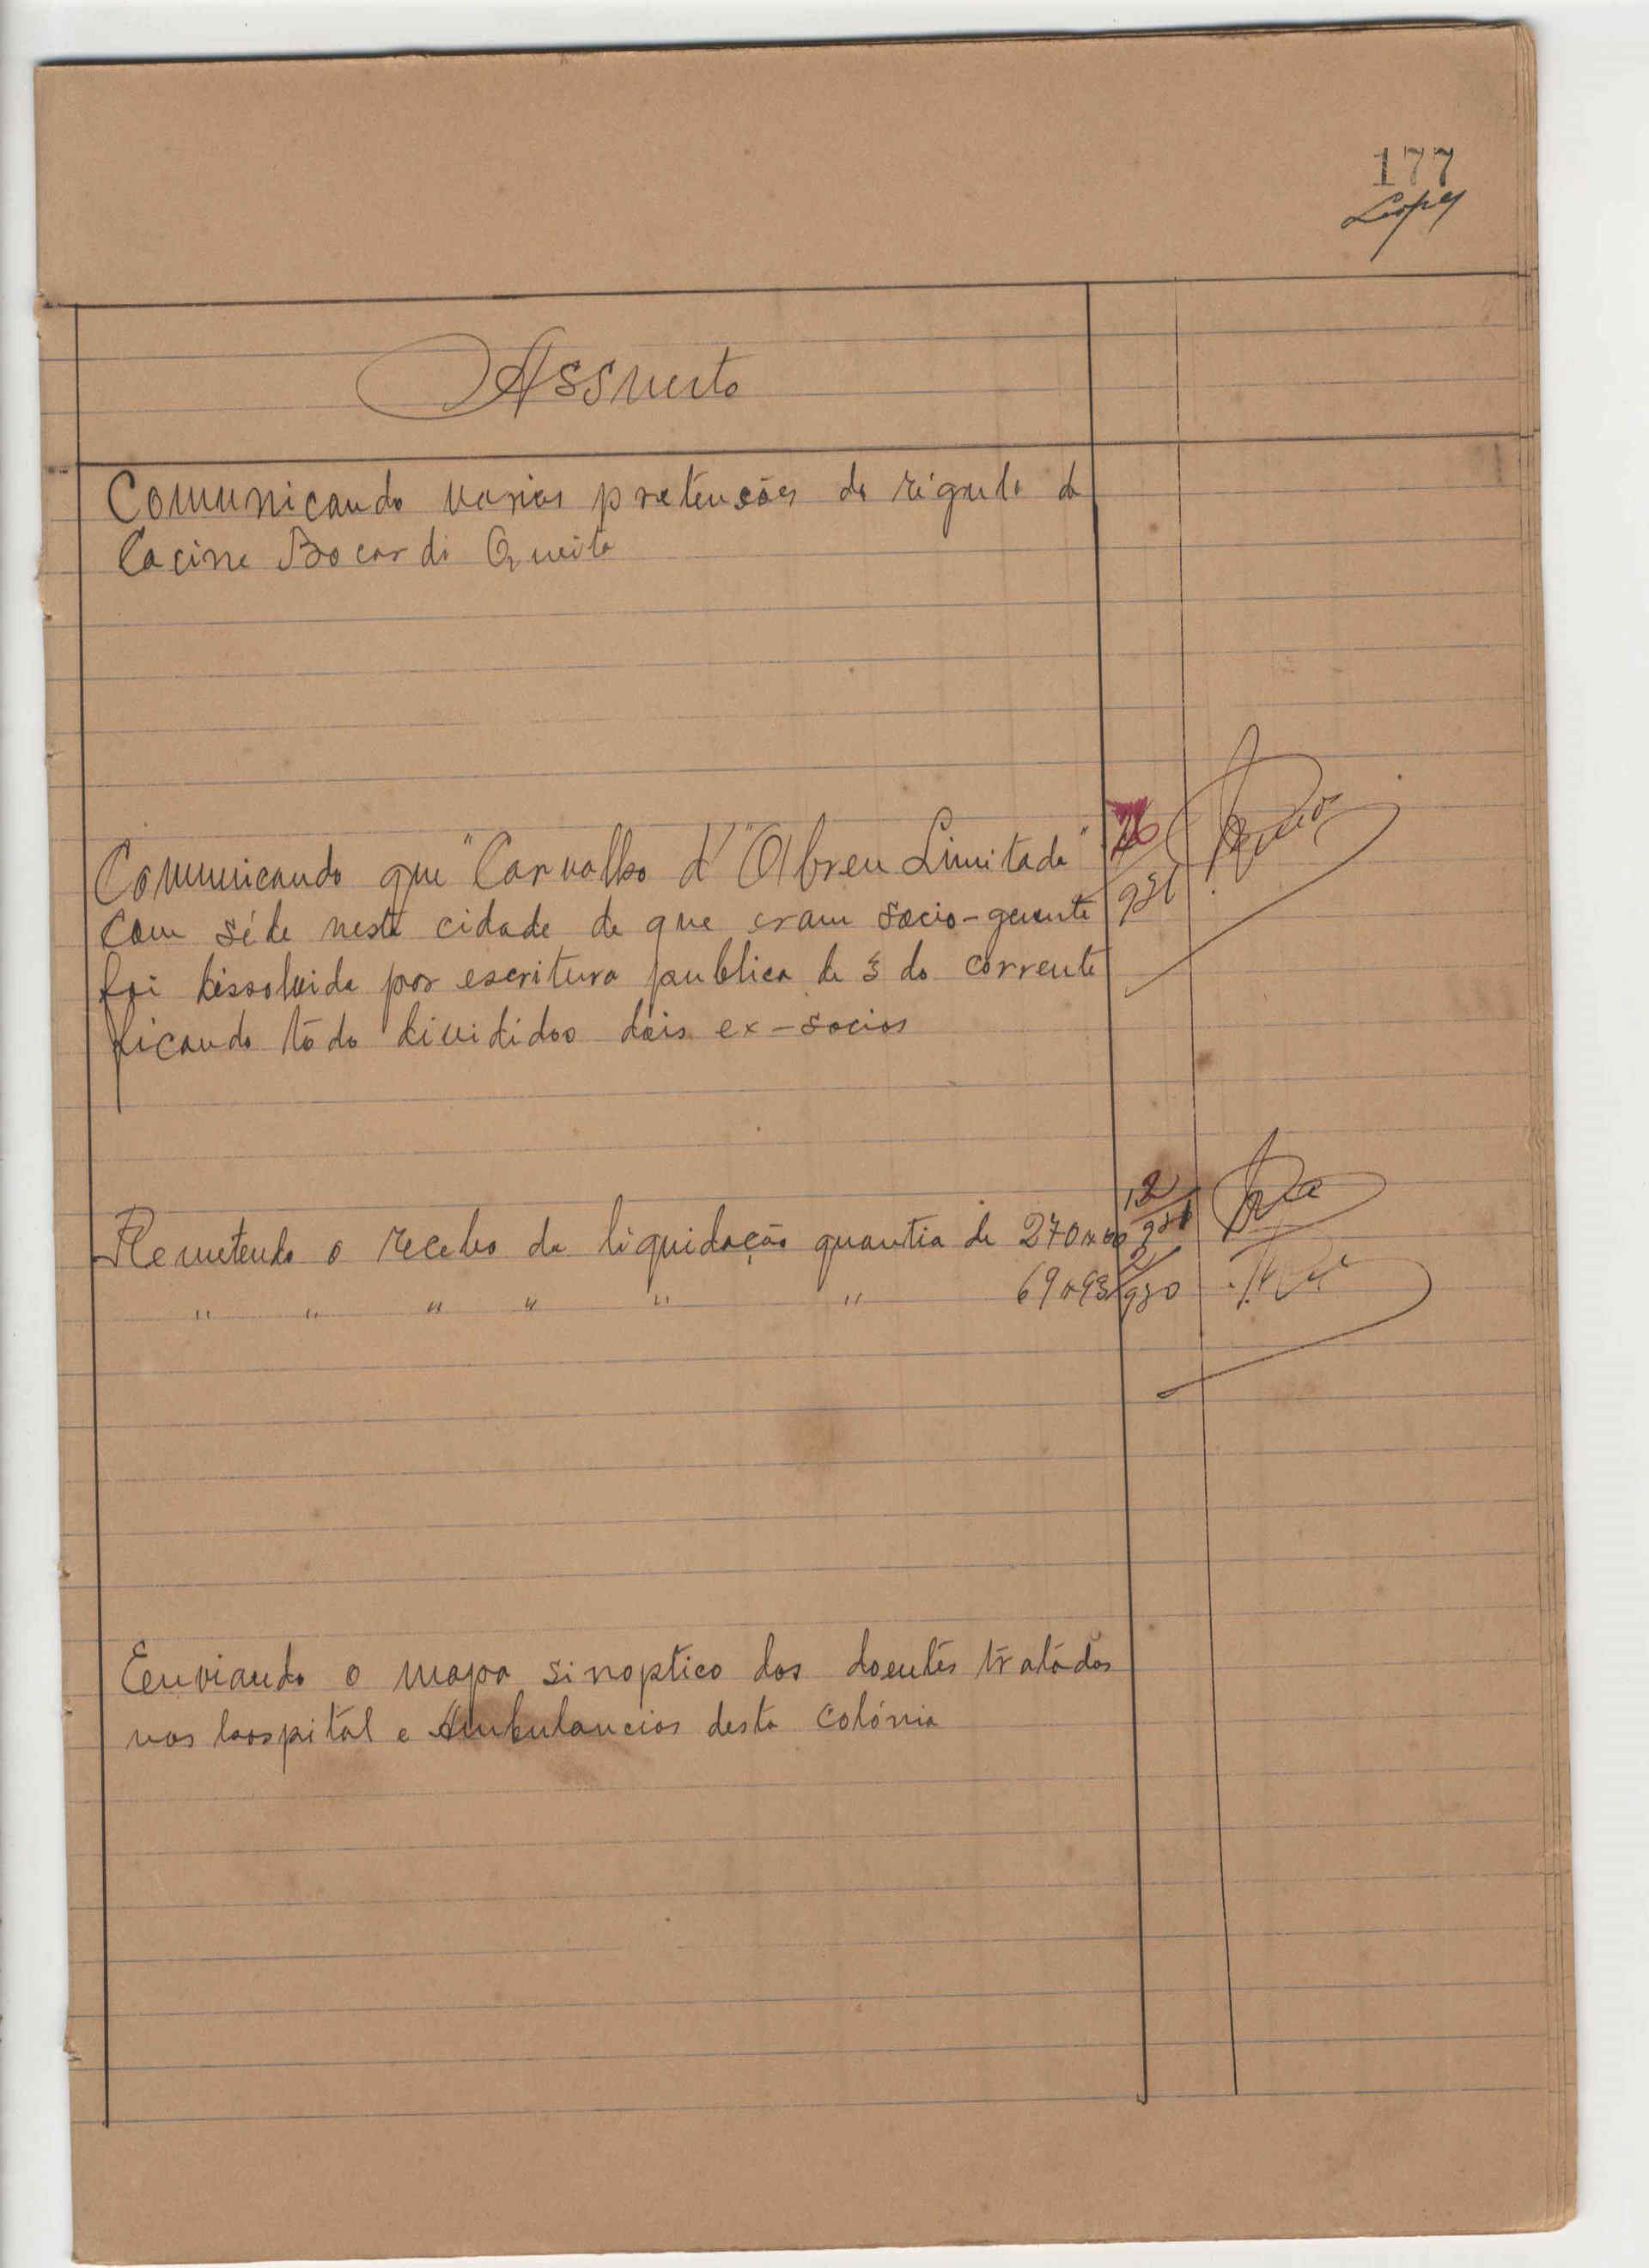 177
Lopes
Assunto
Comunicando varias pretenções do régulo de
Cacine Bocar di Queita
Comunicando que "Carvalho d'"Abreu Limitada"
26
com séde nesta cidade de que eram socio-gerente
931
foi dissolvida por escritura publica de 3 do corrente
ficando tôdo divididos dois ex-socios
Remetendo o recebo da liquidação quantia de 270$00
12
" " " " " " 69$93
2/930
Eenviando o mapa sinoptico dos doentes tratádos
nos hospital e Ambulancias desta colónia